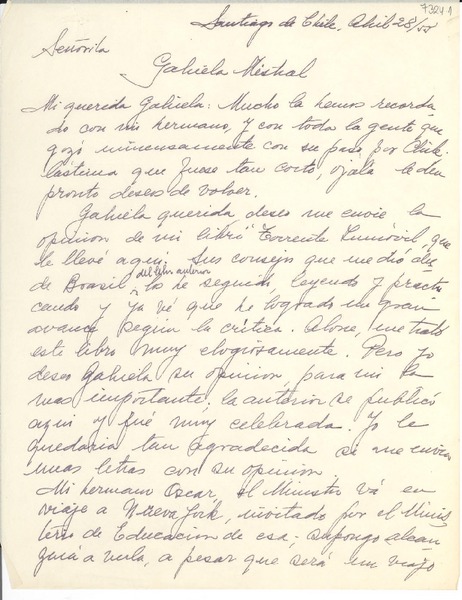 73241
Santiago de Chile, Abril 28/55
Señorita
Gabriela Mistral
Mi querida Gabriela: Mucho la hemos recorda
do con mi hermano, y con toda la gente que
gozó inmensamente con su paso por Chile.
lástima que fuese tan corto, ojalá le den
pronto deseos de volver.
Gabriela querida, deseo me envíe la
opinion de mi libro "Torrente Inmóvil, que
le llevé aquí. Sus consejos que me dió des
de Brasil, del libro anterior los he seguido, leyendo y practi
cando y ya vé que he logrado un gran
avance segun la crítica. Alone, me trató
este libro muy elogiosamente. Pero yo
deseo Gabriela su opinion, para mi la
mas importante, la anterior se publicó
aquí y fué muy celebrada. Yo le
quedaria tan agradecida si me envia
unas letras con su opinion.
Mi hermano Oscar, el Ministro vá en
viaje a Nueva York, invitado por el Minis
terio de Educacion de esa; supongo alcan
zará a verla, a pesar que será un viaje